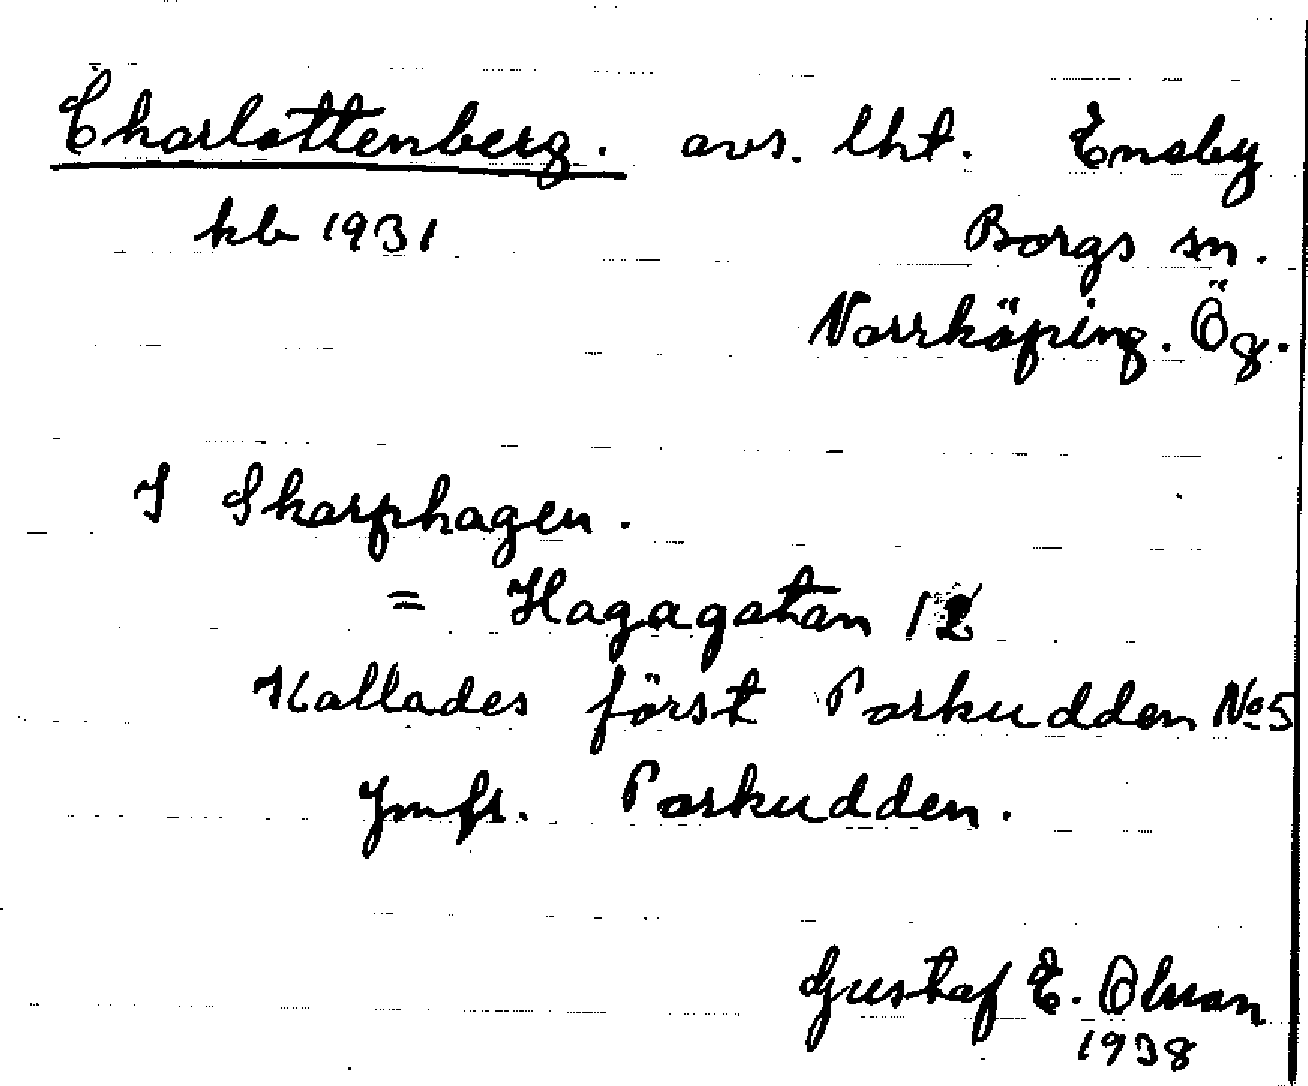 Charlottenberg. avs. lht. Ensby
kb 1931 Borgs sn.
Norrköping. Ög.
I Skarphagen.
= Hagagatan 12
Kallades först Parkudden No 5
Jmfr. Parkudden.
Gustaf E. Olsson
1938